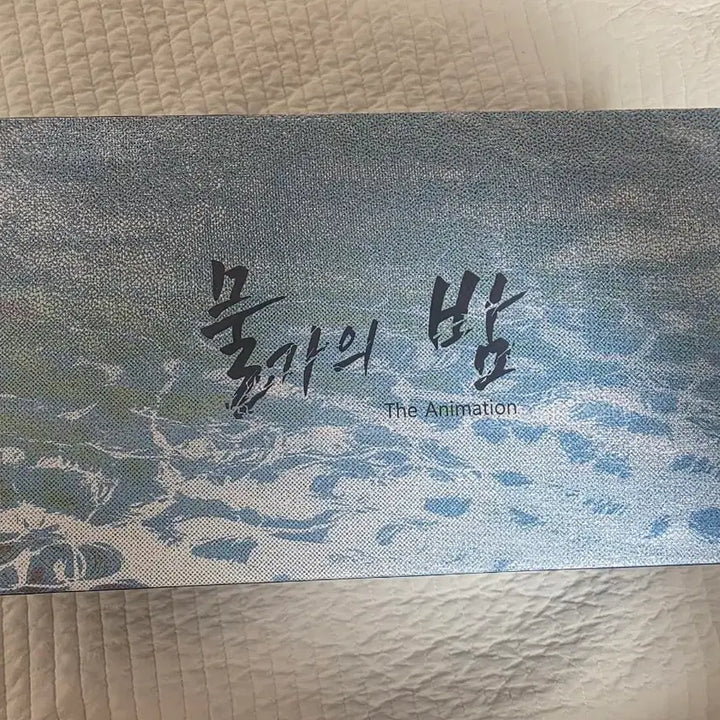 물가의 밤
The Animation